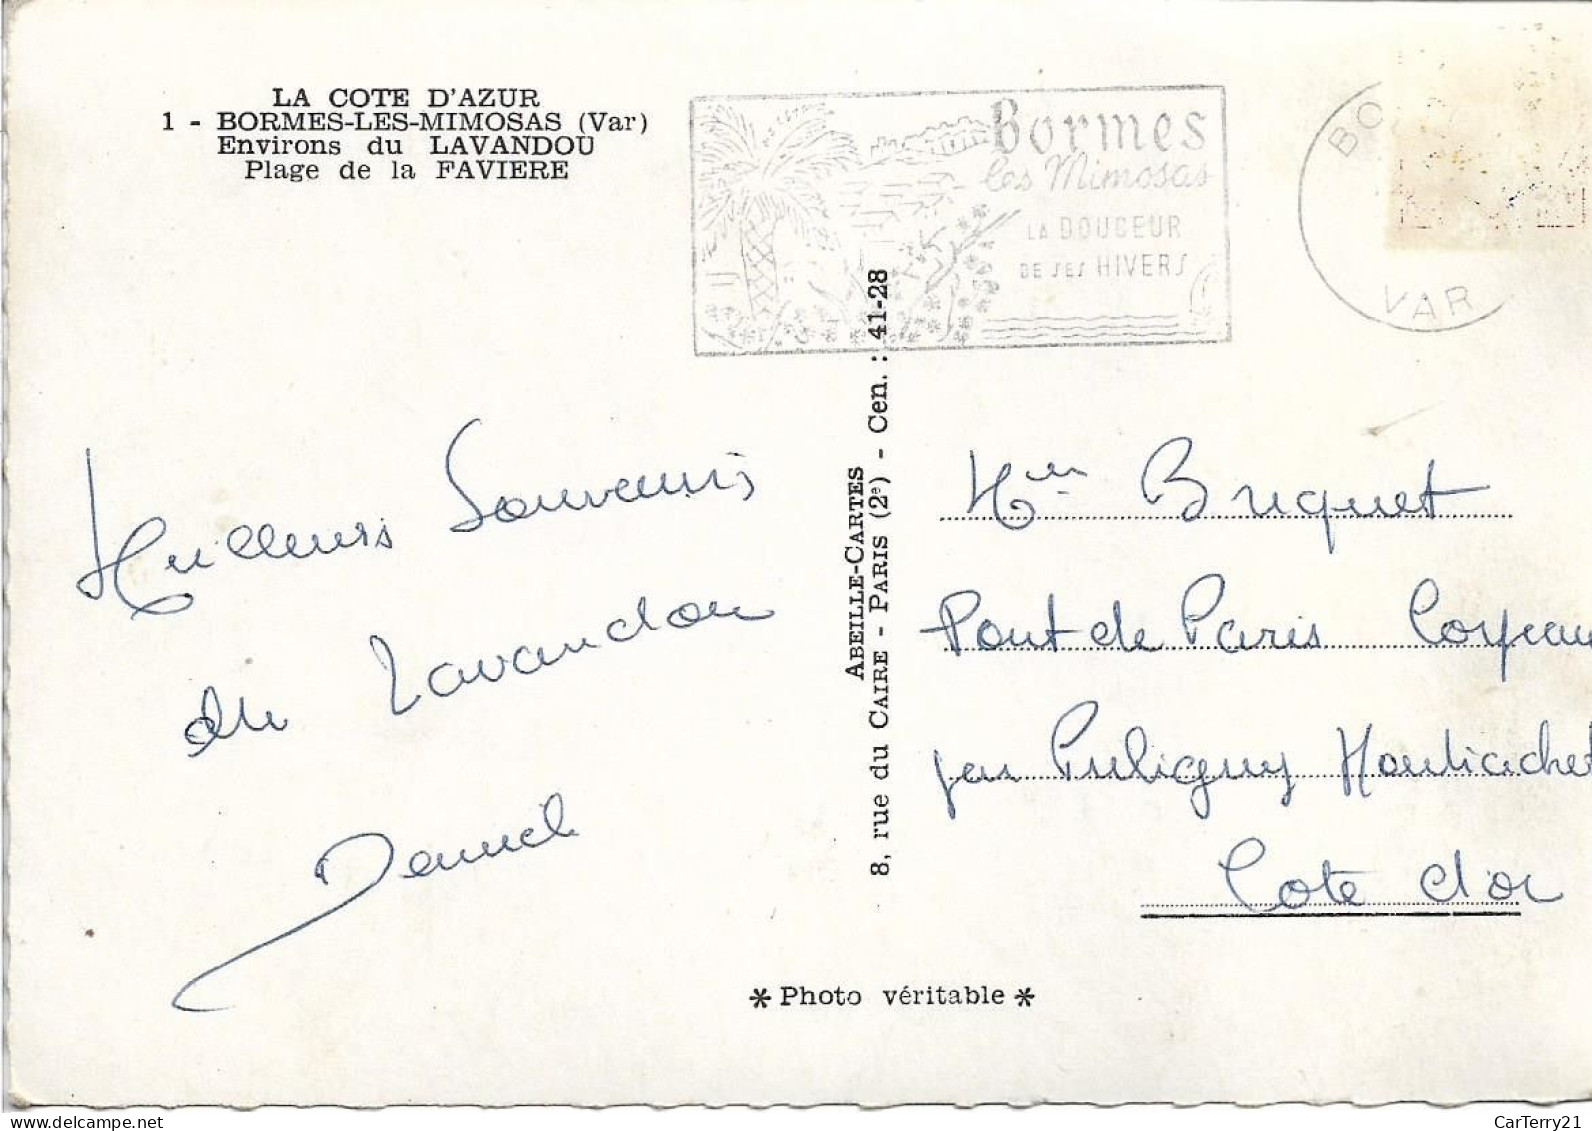 LA COTE D'AZUR
1 - BORMES-LES-MIMOSAS (Var)
Environs du LAVANDOU
Plage de la FAVIERE
Bormes
les Mimosas
LA DOUCEUR
DE SES HIVERS
BO
VAR
Meilleurs Souvenirs
du Lavandou
Daniel
ABEILLE-CARTES
8, rue du CAIRE - PARIS (2e) - Cen. : 41-28
Bruquet
Pont de Paris Corpeau
par Puligny Montrachet
Cote d'or
* Photo véritable *
CarTerry21